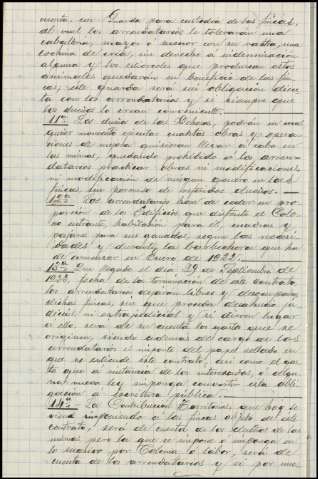 monte, un Guarda para custodia de las fincas,
al cual los arrendatarios le tolerarán una
caballería, mayor ó menor con su rastra, una
cochina de cría, sin derecho a indemnización
alguna y los estiércoles que produzcan estos
animales quedarán en beneficio de las fin-
cas; este guarda será sin obligación direc-
ta con los arrendatarios y si siempre que
los dueños lo crean conveniente.
11ª Los dueños de la Dehesa, podrán en cual
quier momento ejecutar cuantas obras y opera
ciones de mejora quisieran llevar á cabo en
las mismas, quedando prohibido á los arren-
datarios practicar obras ni modificaciones,
ni modificación de ningún género en las
fincas sin permiso de los dueños.
12ª Los arrendatarios han de ceder en pro-
porción de la Edificio que disfrute el Colo-
no entrante, habitación para él, cuadras y
pajares para sus ganados según las necesi-
dades y durante la barbechera que ha
de comenzar en Enero de 1932.
13ª Que llegado el día 29 de Septiembre de
1932, fecha de la terminación de este contrato,
los arrendatarios dejarán libres y desocupadas
dichas fincas, sin que proceda desahucio ju-
dicial ni extrajudicial y si dieran lugar
a ello, será de su cuenta los gastos que se
originen, siendo además del cargo de los
arrendatarios el importe del papel sellado en
que se extiende este contrato, así como el cos-
te que a instancia de los interesados, ó algu-
na nueva ley imponga convertir esta obli-
gación a Escritura pública.
14ª La Contribución Territorial, que hoy se
viene imponiendo a las fincas objeto de este
contrato, será de cuenta de los dueños de las
mismas pero la que se impone ó imponga en
lo sucesivo por Colonia ó labor, será de
cuenta de los arrendatarios y si por una